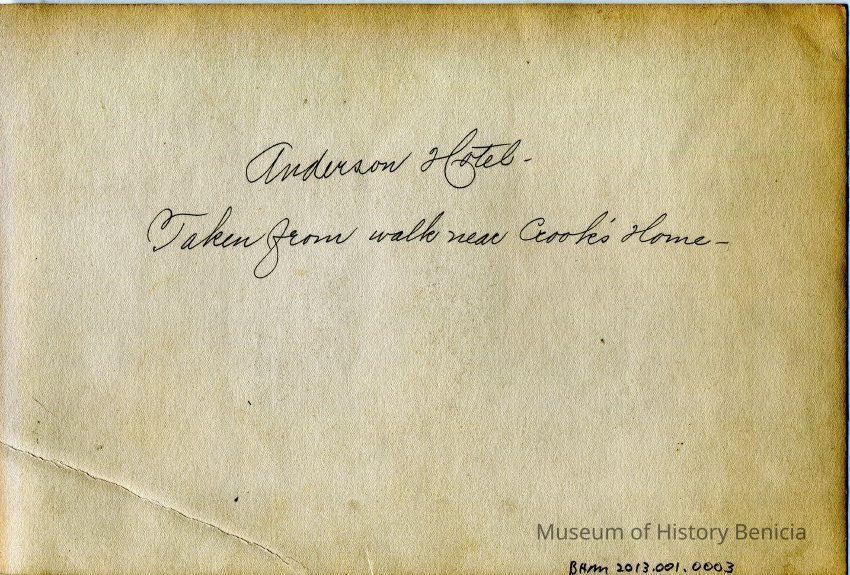 Anderson Hotel-
Taken from walk near Crook's Home-
Museum of History Benicia
BHM 2013.001.0003